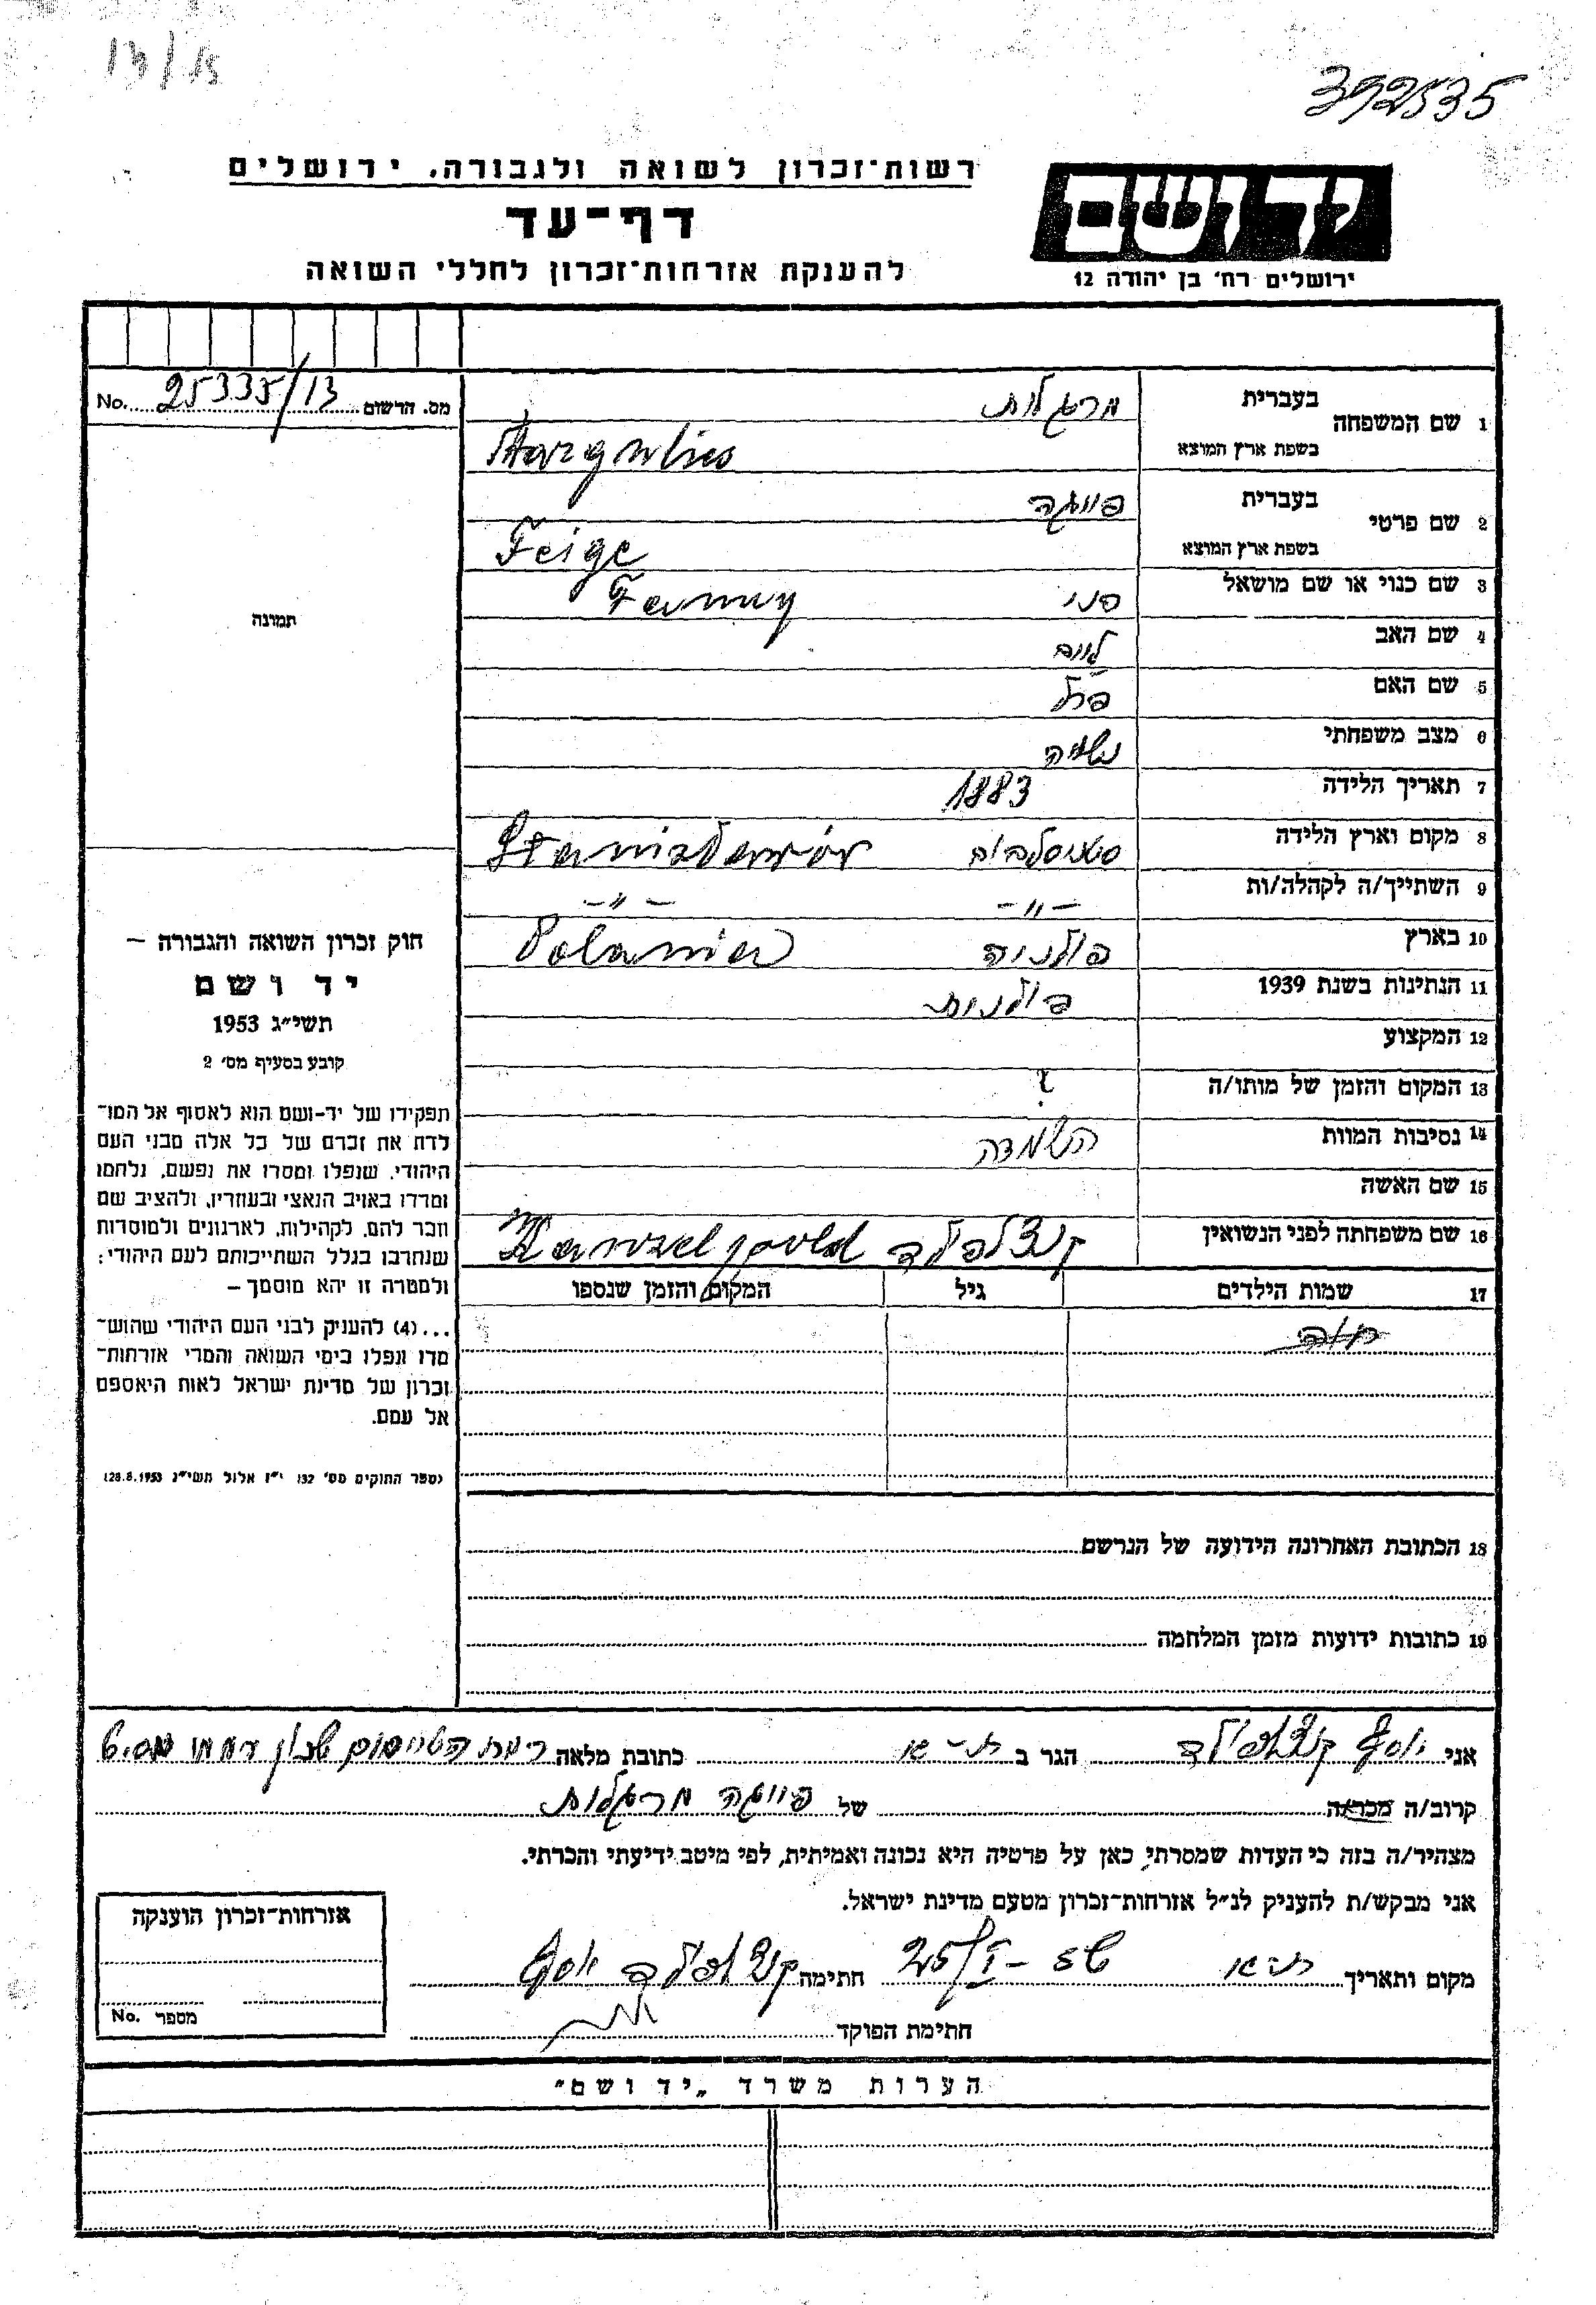 13/13
392535
רשות־זכרון לשואה ולגבורה, ירושלים
דף־עד
להענקת אזרחות־זכרון לחללי השואה
יד ושם
ירושלים רח' בן יהודה 12
No. 25335/13 מס. הרשום
1 שם המשפחה בעברית מרגלות
בשפת ארץ המוצא Margulies
2 שם פרטי בעברית פייגה
בשפת ארץ המוצא Feige
3 שם כנוי או שם מושאל פני Fanny
4 שם האב לייב
5 שם האם
6 מצב משפחתי נשואה
7 תאריך הלידה 1883
8 מקום וארץ הלידה סטניסלבוב Stanisławów
9 השתייך/ה לקהלה/ות -"- -"-
10 בארץ פולניה Polania
11 הנתינות בשנת 1939 פולנית
12 המקצוע
13 המקום והזמן של מותו/ה ?
14 נסיבות המוות השמדה
15 שם האשה
16 שם משפחתה לפני הנשואין קנצלפולד Kanzelpold
17 שמות הילדים גיל המקום והזמן שנספו
18 הכתובת האחרונה הידועה של הנרשם
19 כתובות ידועות מזמן המלחמה
תמונה
חוק זכרון השואה והגבורה –
יד ושם
תשי"ג 1953
קובע בסעיף מס' 2
תפקידו של יד-ושם הוא לאסוף אל המו־
לדת את זכרם של כל אלה מבני העם
היהודי, שנפלו ומסרו את נפשם, נלחמו
ומרדו באויב הנאצי ובעוזריו, ולהציב שם
וזכר להם, לקהילות, לארגונים ולמוסדות
שנחרבו בגלל השתייכותם לעם היהודי;
ולמטרה זו יהא מוסמך –
...(4) להעניק לבני העם היהודי שהוש־
מדו ונפלו בימי השואה והמרי אזרחות־
זכרון של מדינת ישראל לאות היאספם
אל עמם.
(ספר החוקים מס' 132 י"ז אלול תשי"ג 28.8.1953)
אני יוסף קנצלפולד הגר ב ת"א כתובת מלאה רמת הטייסים שכון
קרוב/ה מכר/ה של פייגה מרגלות
מצהיר/ה בזה כי העדות שמסרתי כאן על פרטיה היא נכונה ואמיתית, לפי מיטב ידיעתי והכרתי.
אני מבקש/ת להעניק לנ"ל אזרחות־זכרון מטעם מדינת ישראל.
מקום ותאריך ת"א חתימה קנצלפולד יוסף
חתימת הפוקד
אזרחות־זכרון הוענקה
מספר No.
הערות משרד "יד ושם"